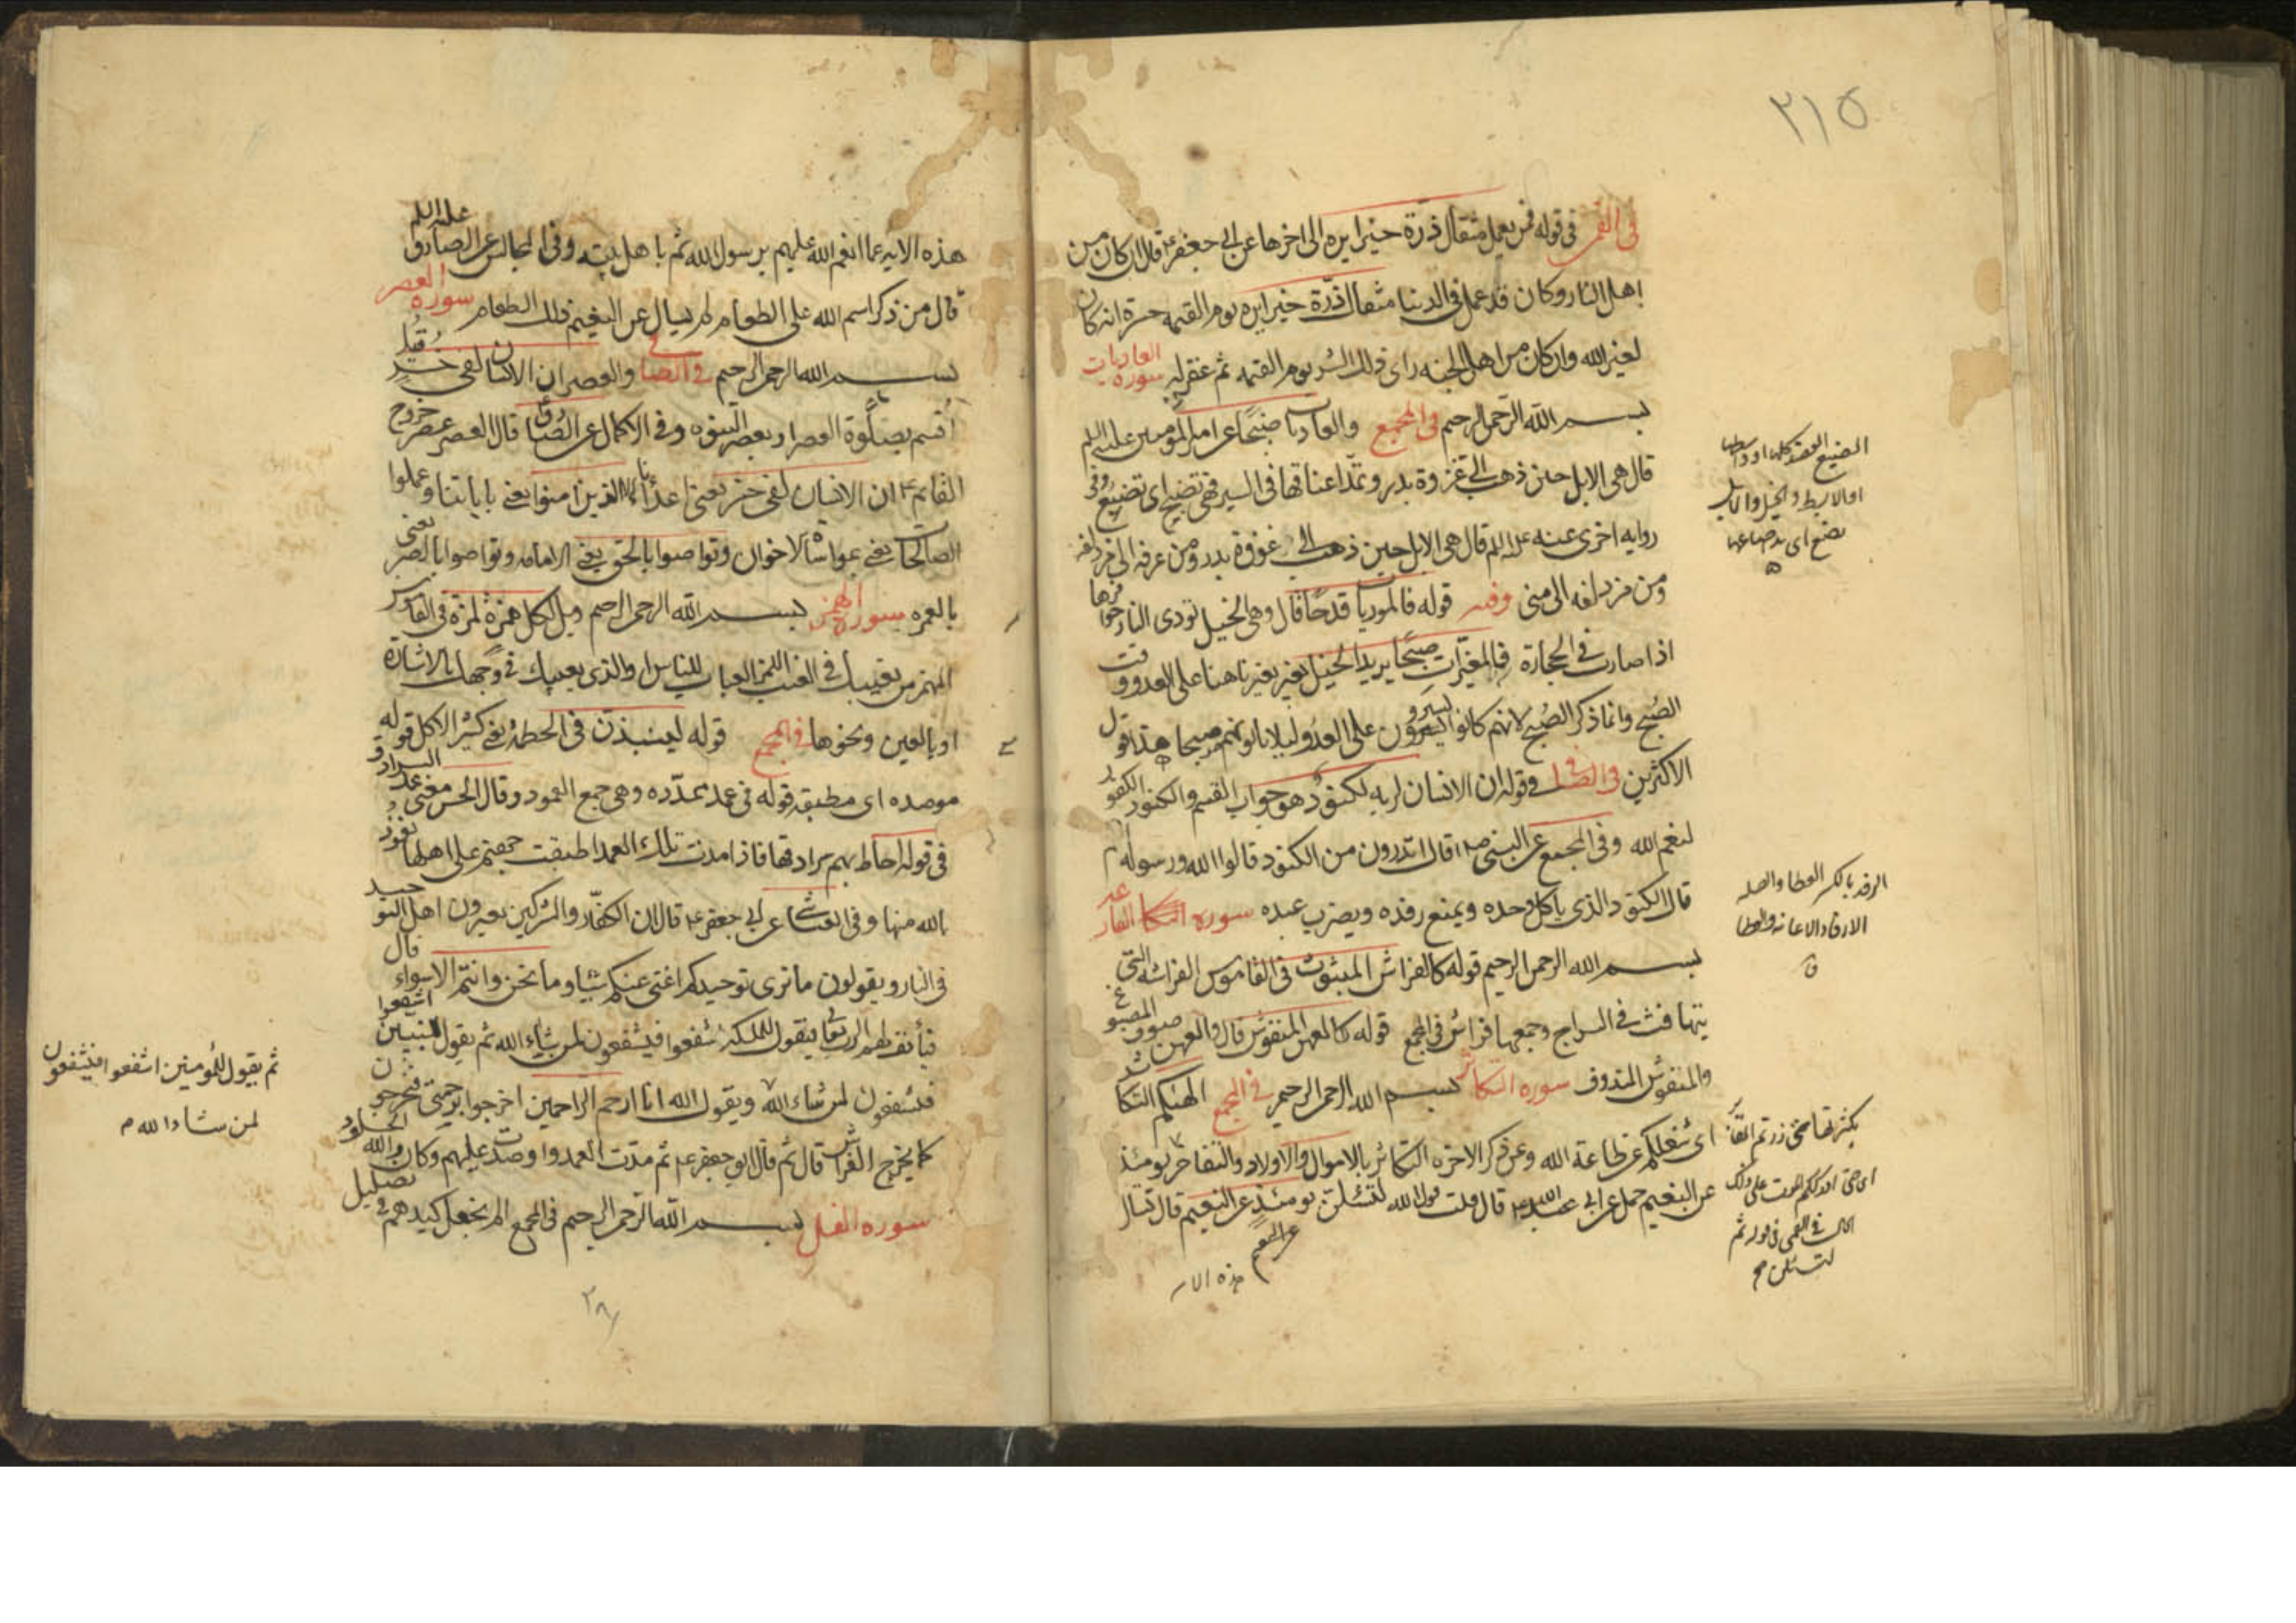 ٢١٥
في القمي في قوله فمن يعمل مثقال ذرة خيرا يره الى اخرها عن ابي جعفر ع قال ان كان من
اهل النار وكان قد عمل في الدنيا مثقال ذرة خيرا يره يوم القيمه حسرة انه كان
لغير الله وان كان من اهل الجنه راى ذلك الشر يوم القيمه ثم غفر له سورة العاديات
بسم الله الرحمن الرحيم في المجمع والعاديات ضبحا عن امير المؤمنين عليه السلم
قال هي الابل حين ذهب الى غزوة بدر وتمد اعناقها في السير فهي تضبح اى تضبع وفي
روايه اخرى عنه عليه السلم قال هي الابل حين ذهب الى غزوة بدر ومن عرفه الى مزدلفه
ومن مزدلفه الى منى وفيه قوله فالموريات قدحا قال وهي الخيل تورى النار حوافرها
اذا صارت في الحجارة فالمغيرات صبحا يريد الخيل تغير بفرسانها على العدو وقت
الصبح وانما ذكر الصبح لانهم كانوا يسرون على العدو ليلا ياتونهم صبحا هذا قول
الاكثرين في الصافي قوله ان الانسان لربه لكنود هو جواب القسم والكنود الكفور
لنعم الله وفي المجمع عن النبي ص اقال اتدرون من الكنود قالوا الله ورسوله اعلم
قال الكنود الذي ياكل وحده ويمنع رفده ويضرب عبده سورة القارعه
بسم الله الرحمن الرحيم قوله كالفراش المبثوث في القاموس الفراشه التي
يتهافت في السراج وجمعها فراش في المجمع قوله كالعهن المنفوش قال والعهن صوف المصبوغ
والمنفوش المندوف سورة التكاثر بسم الله الرحمن الرحيم في المجمع الهيكم التكاثر
اى شغلكم عن طاعة الله وعن ذكر الاخره التكاثر بالاموال والاولاد والتفاخر يومئذ
عن النعيم عن ابي عبد الله ع قال قلت قول الله لتسئلن يومئذ عن النعيم قال تسال
عن النعيم
هذه الا
او الابط والخيل والابل
الرفد بالكسر العطا والصله
الارفاد الاعانه والعطا
ق
بكثرتها حتى زرتم المقابر
اى حتى ادرككم الموت على ذلك
في القمي في قوله ثم
لتسئلن
هذه الايه عما انعم الله عليهم برسول الله ثم باهل بيته وفي المجالس عن الصادق عليه السلم
قال من ذكر اسم الله على الطعام لم يسال عن النعيم ذلك الطعام سورة العصر
بسم الله الرحمن الرحيم في الصافي والعصر ان الانسان لفي خسر قيل
اقسم بصلوة العصر او بعصر النبوه وفي الاكمال عن الصادق قال العصر عصر خروج
القايم ع ان الانسان لفي خسر يعني اعدائنا الا الذين امنوا يعني باياتنا وعملوا
الصالحات يعني بمواساة الاخوان وتواصوا بالحق يعني الامامه وتواصوا بالصبر يعني
بالعمره سورة الهمزه بسم الله الرحمن الرحيم ويل لكل همزة لمزة في القاموس
الهمز من يعيبك في الغيب اللمز العياب للناس او الذي يعيبك في وجهك بالاشارة
او بالعين ونحوها في المجمع قوله لينبذن في الحطمة يعني كثير الاكل قوله
موصده اى مطبقه قوله في عمد ممدده وهي جمع العمود وقال الحسن يعني عمد السرادق
في قوله احاط بهم سرادقها فاذا مدت تلك العمد اطبقت جهنم على اهلها نعوذ
بالله منها وفي العياشي عن ابي جعفر ع قال ان الكفار والمشركين يعيرون اهل التوحيد
في النار ويقولون ما نرى توحيدكم اغنى عنكم شيئا وما نحن وانتم الا سواء قال
فيأنف لهم الرب تعالى فيقول للملئكة اشفعوا فيشفعون لمن شاء الله ثم يقول للنبيين اشفعوا
فيشفعون لمن شاء الله ويقول الله انا ارحم الراحمين اخرجوا برحمتي فيخرجون
كما يخرج الفراش قال ثم قال ابو جعفر ع ثم مدت العمد واوصدت عليهم وكان والله الخلود
سورة الفيل بسم الله الرحمن الرحيم في المجمع الم يجعل كيدهم في تضليل
ثم يقول للمؤمنين اشفعوا فيشفعون
لمن شاء الله م